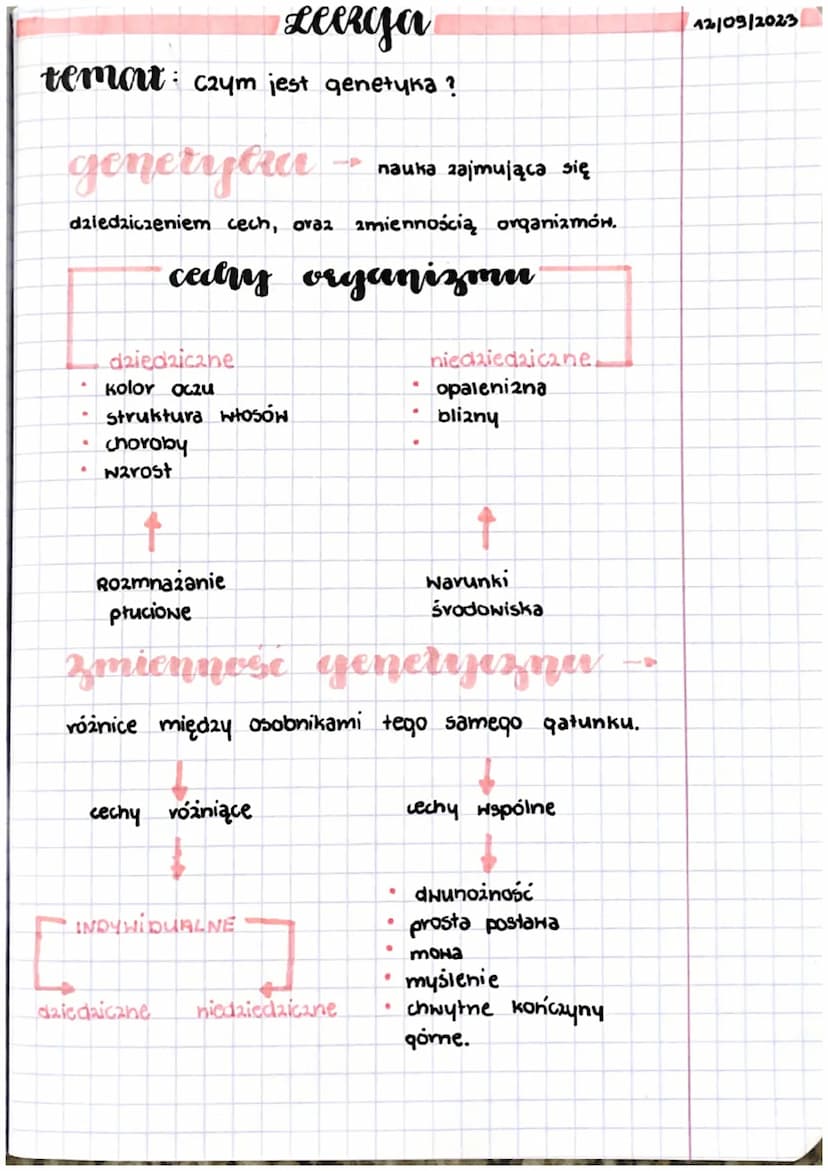 Lekcja
12/09/2023
temat: czym jest genetyka?
genetyka → nauka zajmująca się
dziedziczeniem cech, oraz zmiennością organizmów.
cechy organizmu
dziedziczne
• kolor oczu
• struktura włosów
• choroby
• wzrost
niedziedziczne
• opalenizna
• blizny
•
↑
Rozmnażanie
płciowe
↑
warunki
środowiska
zmienność genetyczna →
różnice między osobnikami tego samego gatunku.
cechy różniące
INDYWIDUALNE
dziedziczne niedziedziczne
cechy wspólne
• dwunożność
• prosta postawa
• mowa
• myślenie
• chwytne kończyny
górne.